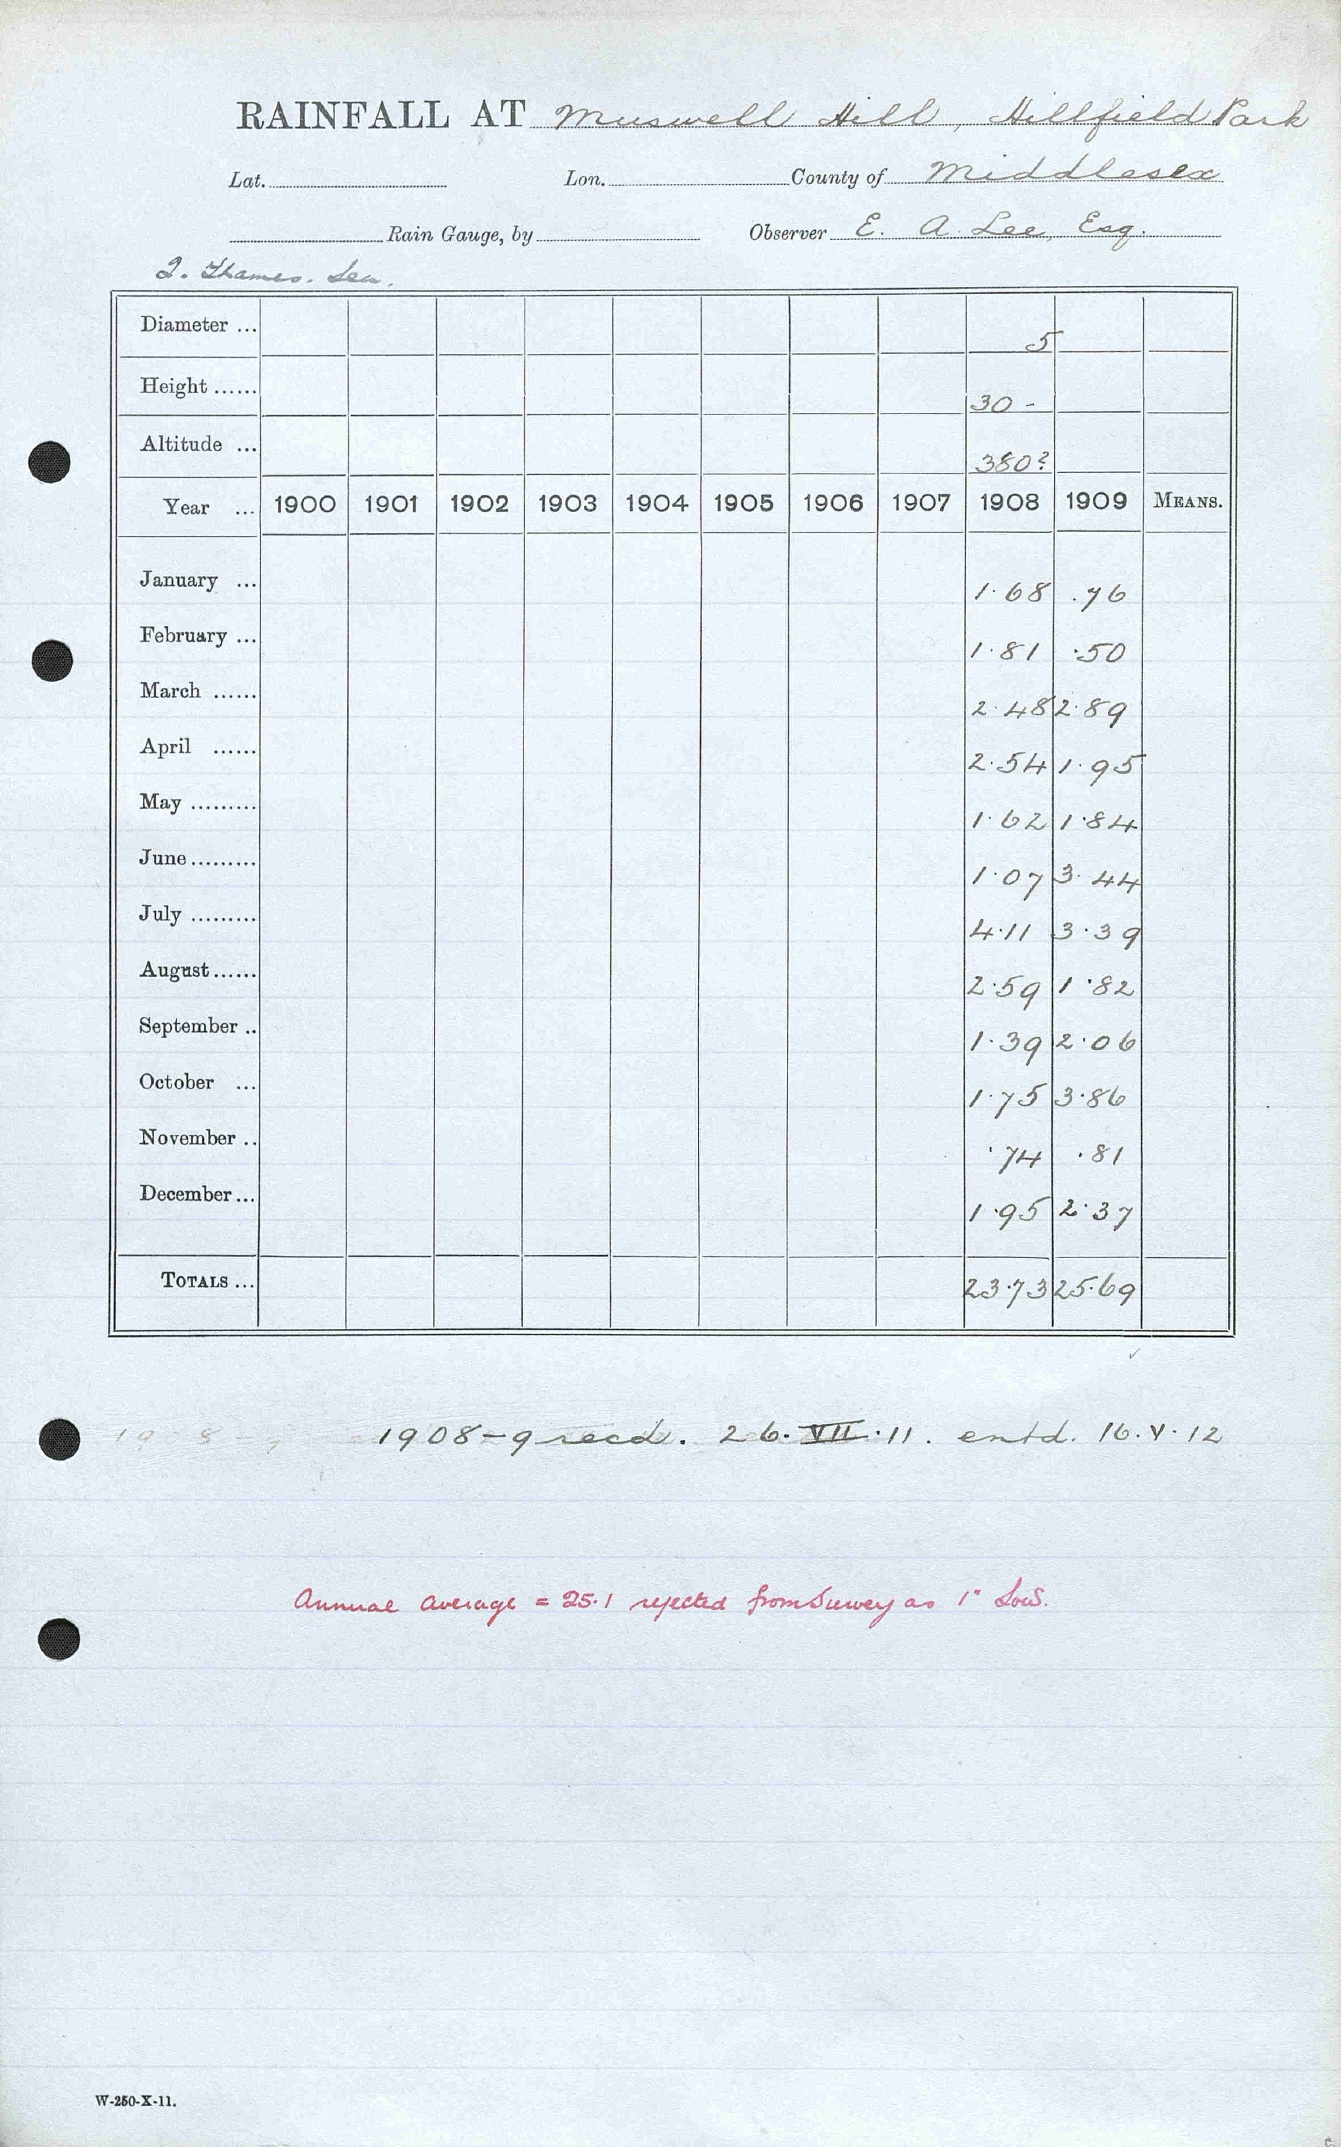 RAINFALL AT Muswell Hill, Hillfield Park
Lat. Lon. County of Middlesex
Rain Gauge, by Observer E. A. Lee, Esq.
2. Thames. Lea.
Diameter ... 5
Height ...... 30 -
Altitude ... 380?
Year ... 1900 1901 1902 1903 1904 1905 1906 1907 1908 1909 MEANS.
January ... 1.68 .76
February ... 1.81 .50
March ...... 2.48 2.89
April ...... 2.54 1.95
May ......... 1.62 1.84
June ......... 1.07 3.44
July ......... 4.11 3.39
August ...... 2.59 1.82
September .. 1.39 2.06
October ... 1.75 3.86
November .. .74 .81
December ... 1.95 2.37
TOTALS ... 23.73 25.69
1908-9 recd. 26.VII.11. entd. 16.V.12
Annual average = 25.1 rejected from Survey as 1" Low.
W-250-X-11.